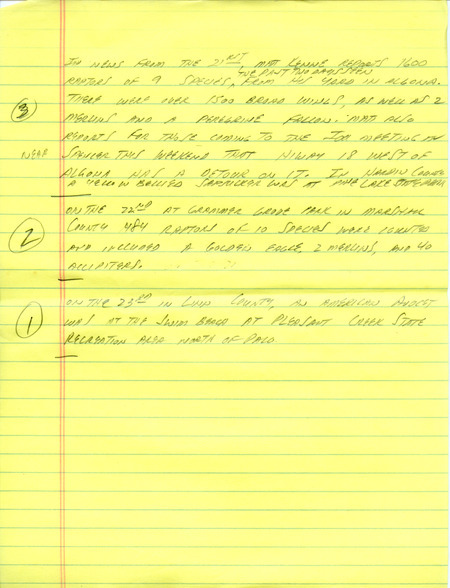 IN NEWS FROM THE 21ST, MATT KENNE REPORTS 1600
THE PAST TWO DAYS SEEN
RAPTORS OF 9 SPECIES, FROM HIS YARD IN ALGONA.
3
THERE WERE OVER 1500 BROAD WINGS, AS WELL AS 2
MERLINS AND A PEREGRINE FALCON. MATT ALSO
REPORTS FOR THOSE COMING TO THE IOU MEETING IN
NEAR
SPENCER THIS WEEKEND THAT HIWAY 18 WEST OF
ALGONA HAS A DETOUR ON IT. IN HARDIN COUNTY
A YELLOW BELLIED SAPSUCKER WAS AT PINE LAKE STATE PARK
ON THE 22ND AT GRAMMER GROVE PARK IN MARSHALL
2
COUNTY 484 RAPTORS OF 10 SPECIES WERE COUNTED
AND INCLUDED A GOLDEN EAGLE, 2 MERLINS, AND 40
ACCIPITERS.
ON THE 23RD IN LINN COUNTY, AN AMERICAN AVOCET
1
WAS AT THE SWIM BEACH AT PLEASANT CREEK STATE
RECREATION AREA NORTH OF PALO.